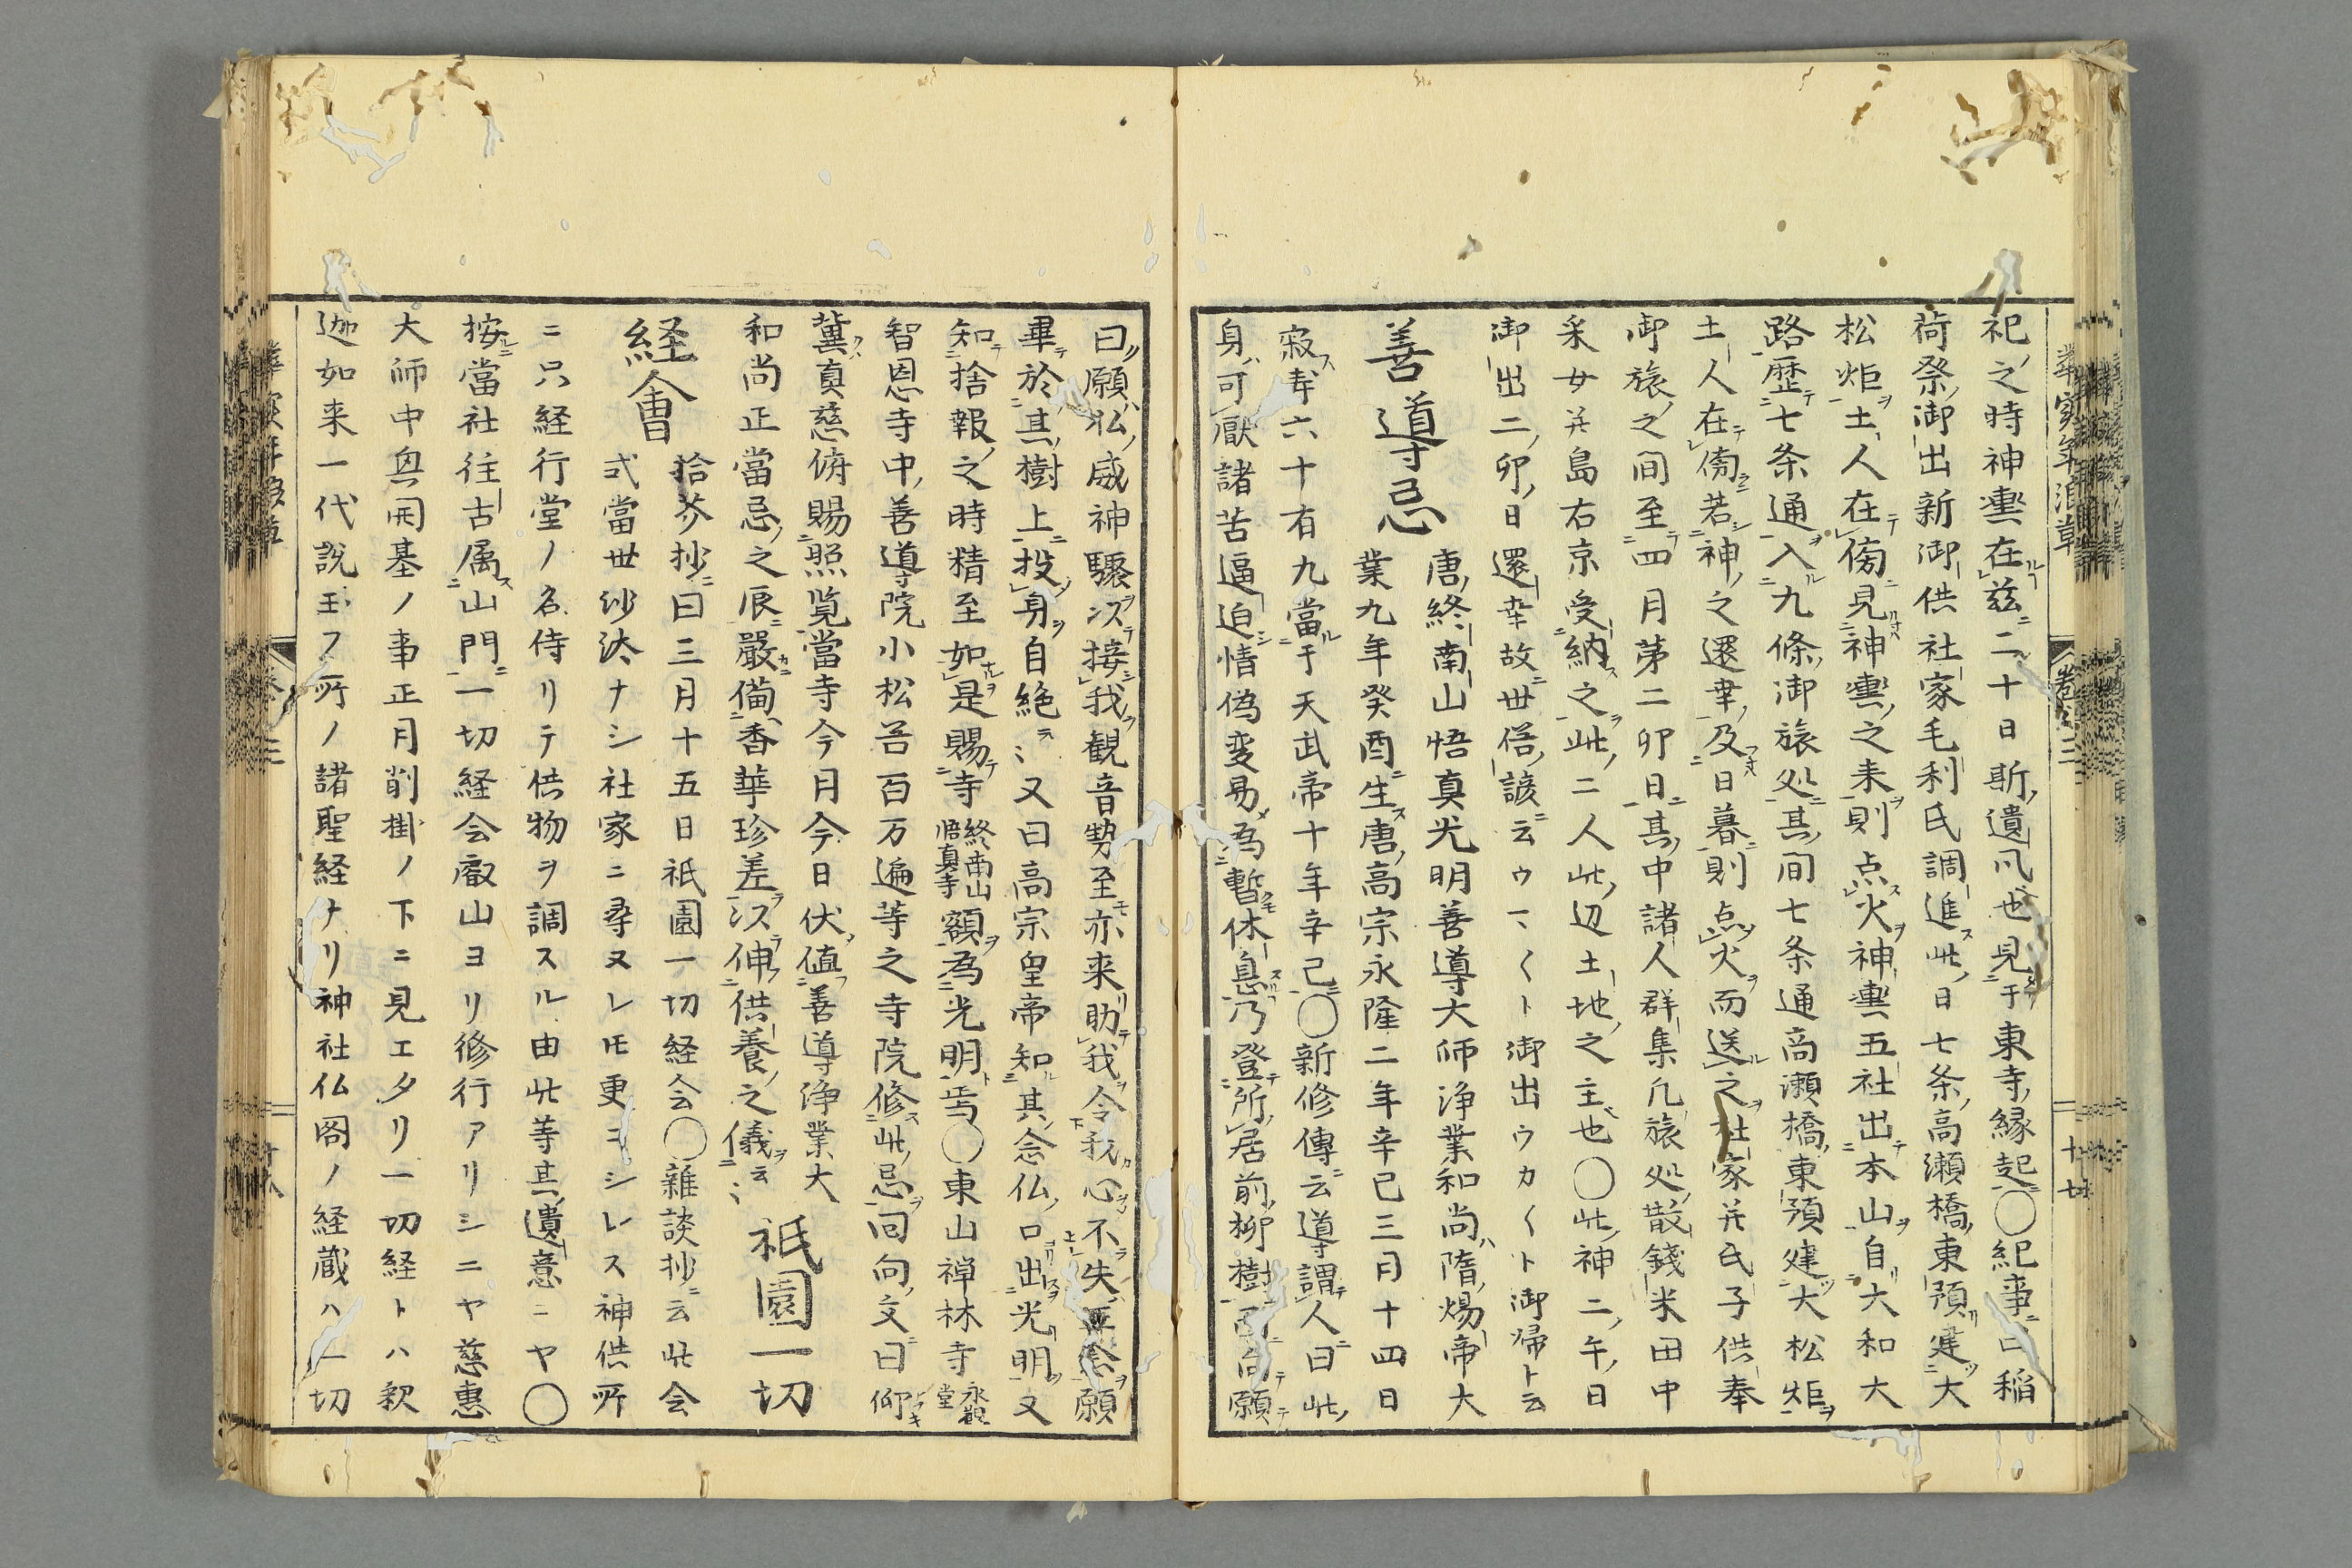 祀之時神輿在茲二十日斯遺凡也見于東寺縁起〇紀事曰稲
荷祭御出新御供社家毛利氏調進此日七条高瀬橋東預建大
松炬土人在傍見神輿之来則点火神輿五社出本山自大和大
路歴七条通入九條御旅処其間七条通高瀬橋東預建大松炬
土人在傍若神之還幸及日暮則点火而送之社家并氏子供奉
御旅之間至四月第二卯日其中諸人群集凡旅処散錢米田中
采女并島右京受納之此二人此辺土地之主也〇此神二午日
御出二卯日還幸故世俗諺云ウマ〱ト御出ウカ〱ト御帰ト云
善導忌
唐終南山悟真光明善導大師浄業和尚隋煬帝大
業九年癸酉生唐高宗永隆二年辛巳三月十四日
寂寿六十有九當于天武帝十年辛己〇新修傳云導謂人曰此
身可厭諸苦逼迫情偽変易為暫休息乃登所居前柳樹西向願
曰願仏威神驟以接我観音勢至亦来助我令我心不失正念願
畢於其樹上投身自絶云〻又曰高宗皇帝知其念仏口出光明又
知捨報之時精至如是賜寺終南山悟真寺額為光明焉〇東山禅林寺永観堂
智恩寺中善導院小松谷百万遍等之寺院修此忌回向文曰仰
冀真慈俯賜照覧當寺今月今日伏値善導浄業大
和尚正當忌之辰嚴備香華珍差以伸供養之儀云〻
祇園一切
経會
拾芥抄曰三月十五日祇園一切経会〇雑談抄云此会
式當世紗汰ナシ社家ニ尋ヌレ𪜈更ニシレス神供所
ニ只経行堂ノ名侍リテ供物ヲ調スル由此等其遺意ニヤ〇
按當社往古属山門一切経会叡山ヨリ修行アリシニヤ慈惠
大師中興開基ノ事正月削掛ノ下ニ見エタリ一切経トハ釈
迦如来一代説玉フ所ノ諸聖経ナリ神社仏閣ノ経蔵ハ一切